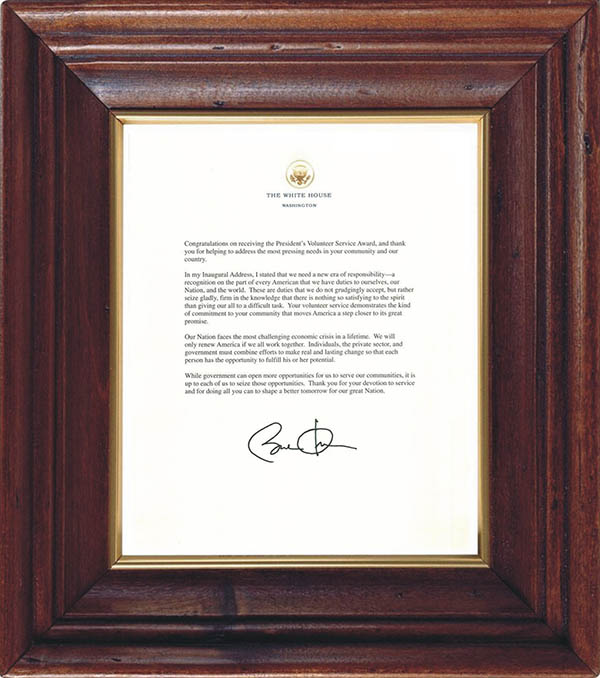 THE WHITE HOUSE
WASHINGTON
Congratulations on receiving the President's Volunteer Service Award, and thank
you for helping to address the most pressing needs in your community and our
country.
In my Inaugural Address, I stated that we need a new era of responsibility—a
recognition on the part of every American that we have duties to ourselves, our
Nation, and the world. These are duties that we do not grudgingly accept, but rather
seize gladly, firm in the knowledge that there is nothing so satisfying to the spirit
than giving our all to a difficult task. Your volunteer service demonstrates the kind
of commitment to your community that moves America a step closer to its great
promise.
Our Nation faces the most challenging economic crisis in a lifetime. We will
only renew America if we all work together. Individuals, the private sector, and
government must combine efforts to make real and lasting change so that each
person has the opportunity to fulfill his or her potential.
While government can open more opportunities for us to serve our communities, it is
up to each of us to seize those opportunities. Thank you for your devotion to service
and for doing all you can to shape a better tomorrow for our great Nation.